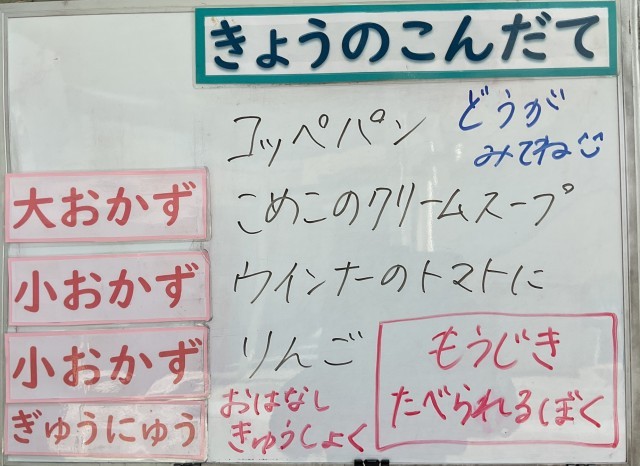 きょうのこんだて
コッペパン
どうが
みてね
大おかず
こめこのクリームスープ
小おかず
ウインナーのトマトに
小おかず
りんご
ぎゅうにゅう
おはなし
きゅうしょく
もうじき
たべられるぼく